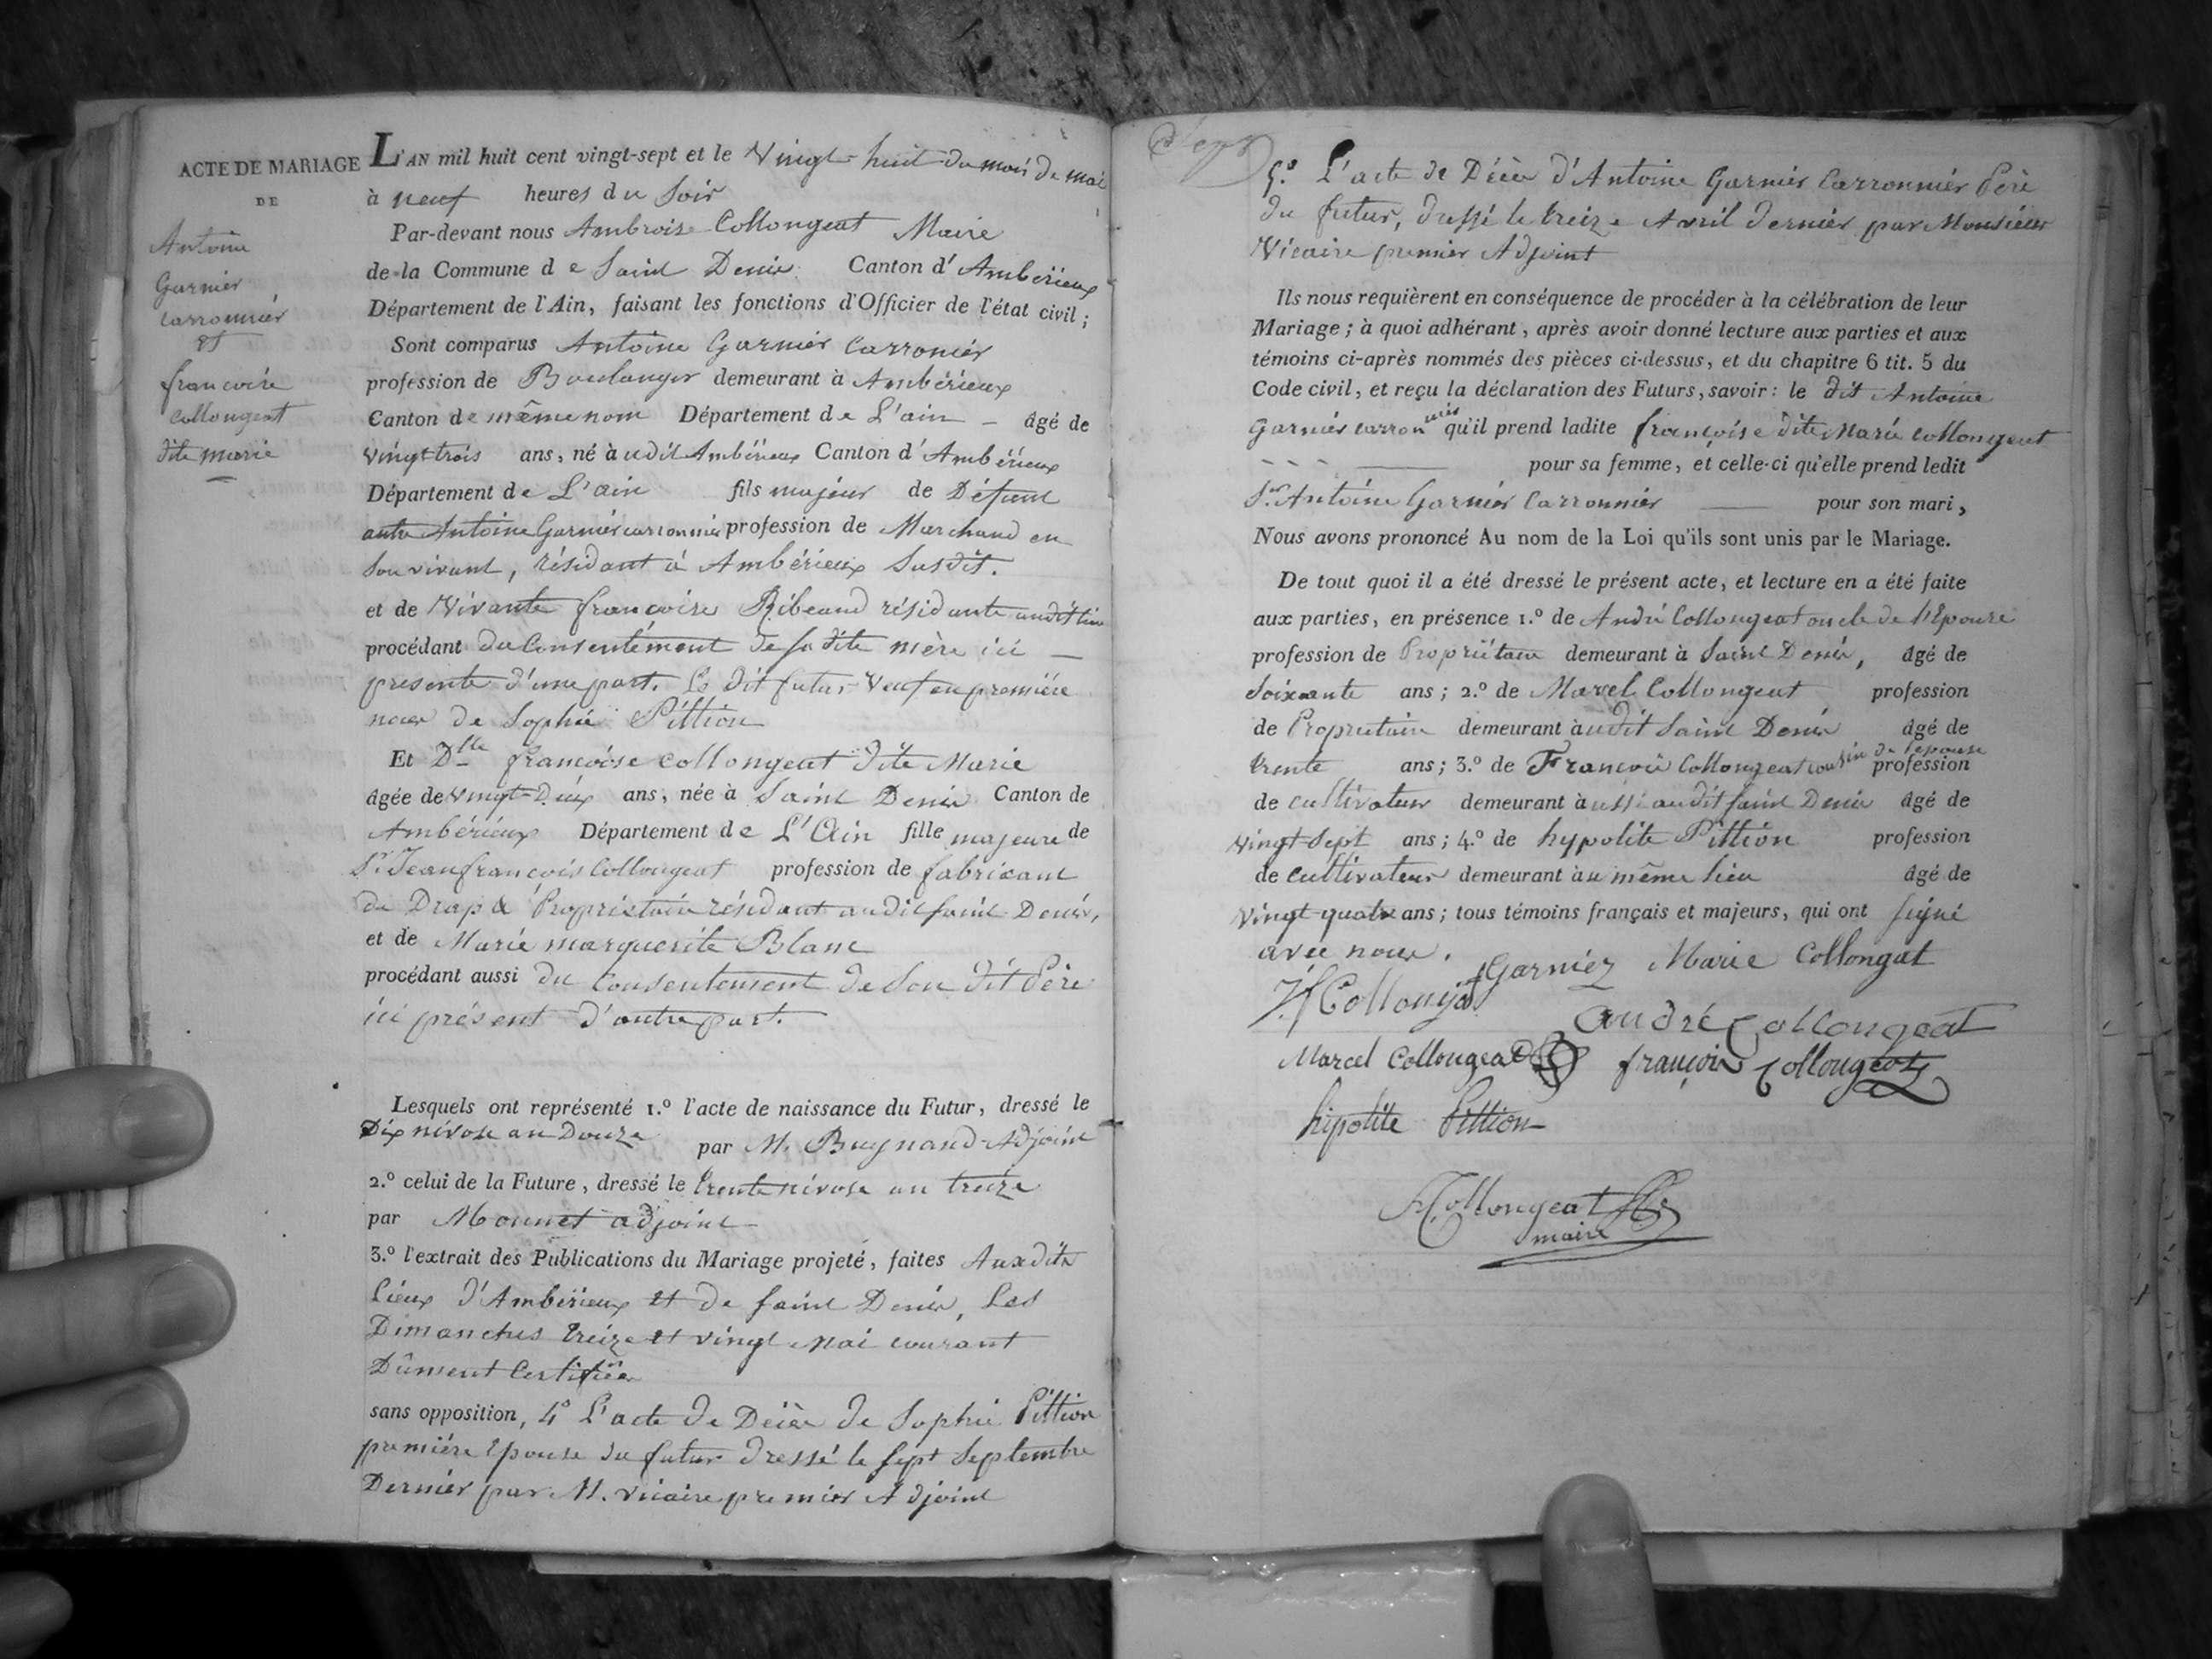 ACTE DE MARIAGE
DE
Antoine
Garnier
carronnier
et
françoise
Collongeat
dite marie
L'AN mil huit cent vingt-sept et le Vingt-huit du mois de mai
à neuf heures du Soir
Par-devant nous Ambroise Collongeat Maire
de la Commune de Saint Denis Canton d'Ambérieux
Département de l'Ain, faisant les fonctions d'Officier de l'état civil;
Sont comparus Antoine Garnier Carronier
profession de Boulanger demeurant à Ambérieux
Canton de même nom Département de L'ain - âgé de
vingt trois ans, né à udit Ambérieux Canton d'Ambérieux
Département de L'ain fils majeur de Défunt
autre Antoine Garnier carronnier profession de Marchand en
Son vivant, résidant à Ambérieux Susdit.
et de Vivante françoise Ribeaud résidante audit lieu
procédant du Consentement de sa dite mère ici
presente d'une part. Le dit futur Veuf en première
noces de Sophie Pittion
Et Dlle françoise Collongeat dite Marie
âgée de vingt-Deux ans, née à Saint Denis Canton de
Ambérieux Département de L'Ain fille majeure de
Sr. Jean françois Collongeat profession de fabricant
de Drap & Propriétaire résidant audit saint Denis,
et de Marie marguerite Blanc
procédant aussi du Consentement de Son dit Père
ici présent d'autre part.
Lesquels ont représenté 1.º l'acte de naissance du Futur, dressé le
Dix nivose an Douze par M. Bugnand Adjoint
2.º celui de la Future, dressé le trente nivose an treize
par Monnet adjoint
3.º l'extrait des Publications du Mariage projeté, faites Auxdits
Lieux d'Ambérieux et de saint Denis, Les
Dimanches treize et vingt Mai courant
Dûment Certifiées
sans opposition, 4º L'acte de Décès de Sophie Pittion
première Epouse du futur dressé le sept Septembre
Dernier par M. vicaire premier Adjoint
5.º L'acte de Décès d'Antoine Garnier Carronnier Père
du futur, dressé le treize Avril dernier par Monsieur
Vicaire premier Adjoint
Ils nous requièrent en conséquence de procéder à la célébration de leur
Mariage; à quoi adhérant, après avoir donné lecture aux parties et aux
témoins ci-après nommés des pièces ci-dessus, et du chapitre 6 tit. 5 du
Code civil, et reçu la déclaration des Futurs, savoir: le dit Antoine
Garnier carronnier qu'il prend ladite françoise dite Marie Collongeat
pour sa femme, et celle-ci qu'elle prend ledit
Sr. Antoine Garnier Carronnier pour son mari,
Nous avons prononcé Au nom de la Loi qu'ils sont unis par le Mariage.
De tout quoi il a été dressé le présent acte, et lecture en a été faite
aux parties, en présence 1.º de André Collongeat oncle de l'Epouse
profession de Propriétaire demeurant à Saint Denis, âgé de
Soixante ans; 2.º de Marcel Collongeat profession
de Propriétaire demeurant audit Saint Denis âgé de
trente ans; 3.º de François Collongeat cousin de lepouse profession
de cultivateur demeurant à ussi audit saint Denis âgé de
vingt Sept ans; 4.º de hypolite Pittion profession
de cultivateur demeurant au même lieu âgé de
vingt quatre ans; tous témoins français et majeurs, qui ont signé
avec nous.
Garnier Marie Collongat
J.f Collongat
andré Collongeat
Marcel Collongeat françois Collongeat
hipolite Pittion
A Collongeat
maire